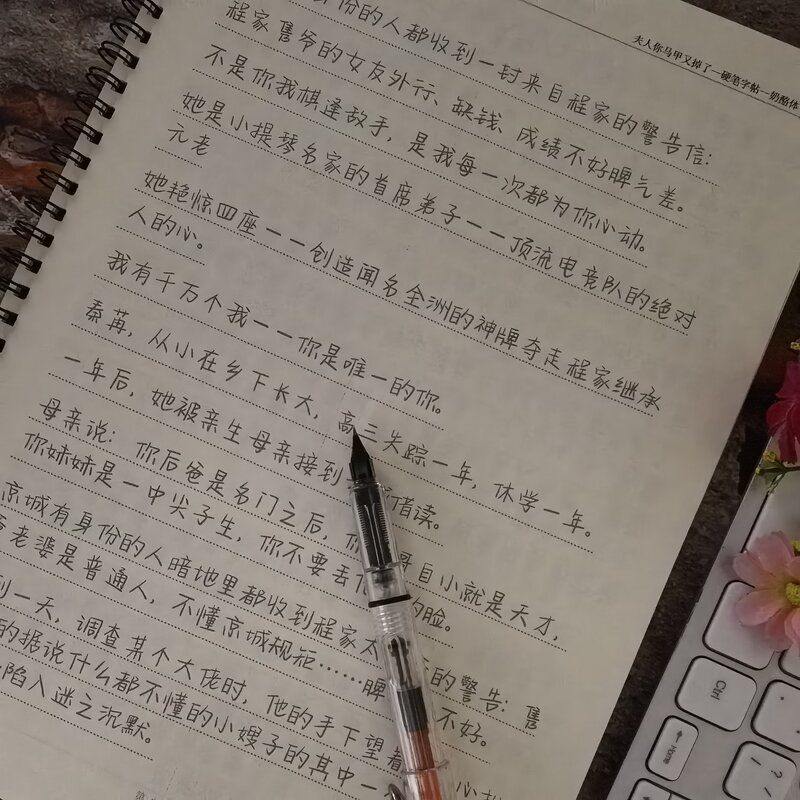 夫人你马甲又掉了—硬笔字帖—奶酪体
身份的人都收到一封来自程家的警告信：
程家隽爷的女友外行、缺钱、成绩不好脾气差。
不是你我棋逢敌手，是我每一次都为你心动。
她是小提琴名家的首席弟子——顶流电竞队的绝对
元老
她艳惊四座——创造闻名全洲的神牌夺走程家继承
人的心。
我有千万个我——你是唯一的你。
秦苒，从小在乡下长大，高三失踪一年，休学一年。
一年后，她被亲生母亲接到 借读。
母亲说：你后爸是名门之后，你 哥自小就是天才，
你妹妹是一中尖子生，你不要丢 的脸。
京城有身份的人暗地里都收到程家太 的警告：隽
老婆是普通人，不懂京城规矩……脾 不好。
到一天，调查某个大佬时，他的手下望着
的据说什么都不懂的小嫂子的其中一
陷入谜之沉默。
Ctrl
Home